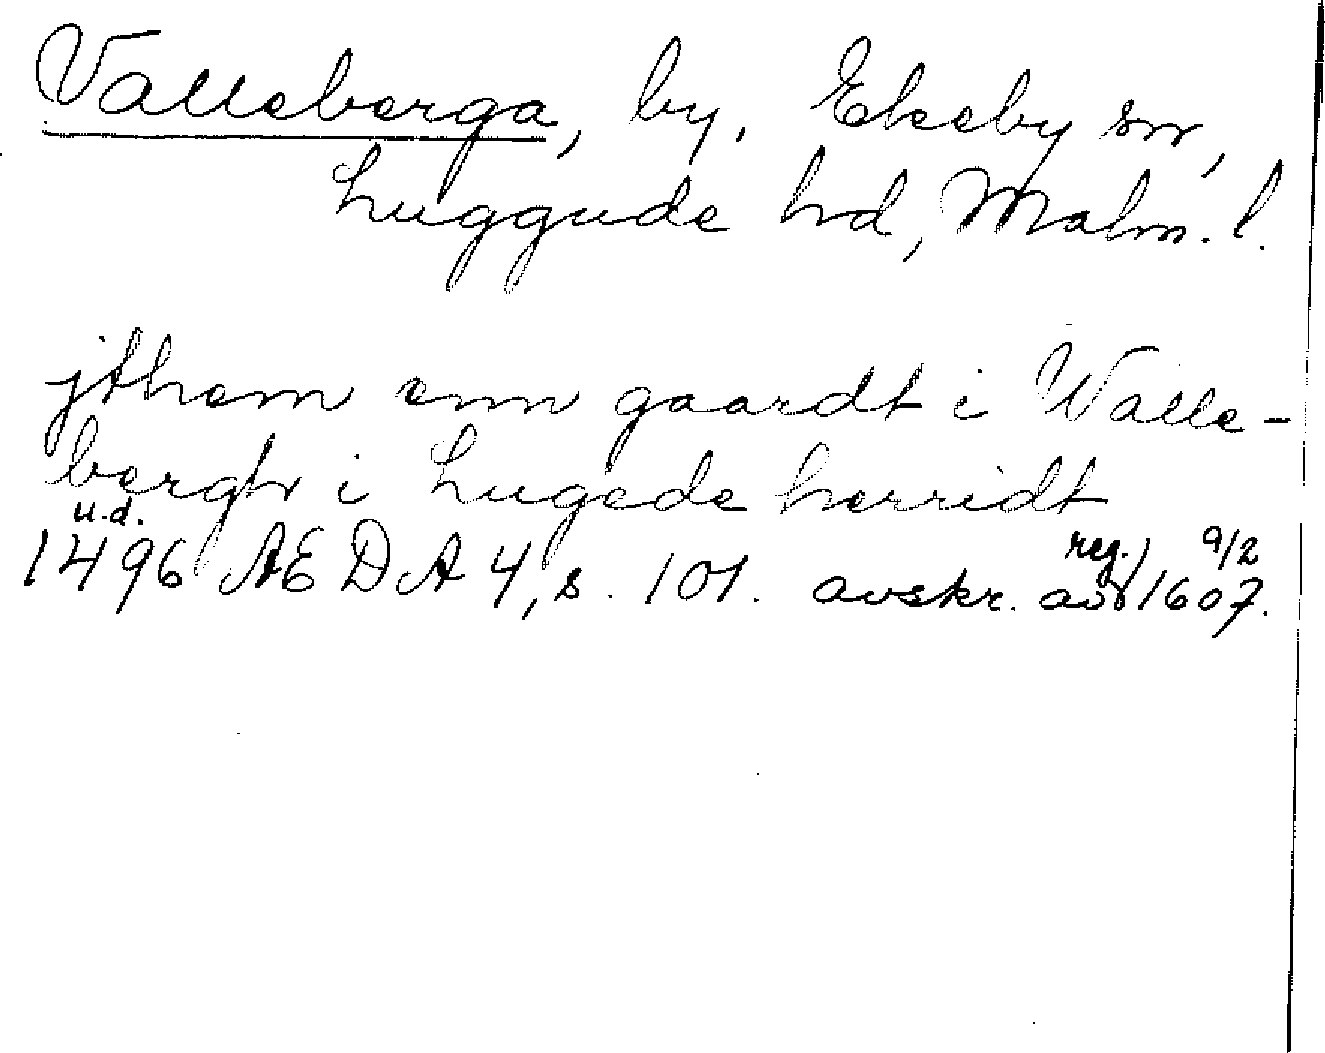 Valleberga, by, Ekeby sn,
Luggude hd, Malm. l.
jthem enn gaardt i Walle-
bergh i Lugede herridt
u.d. reg. 9/2
1496 AEDA 4, s. 101. avskr. av 1607.